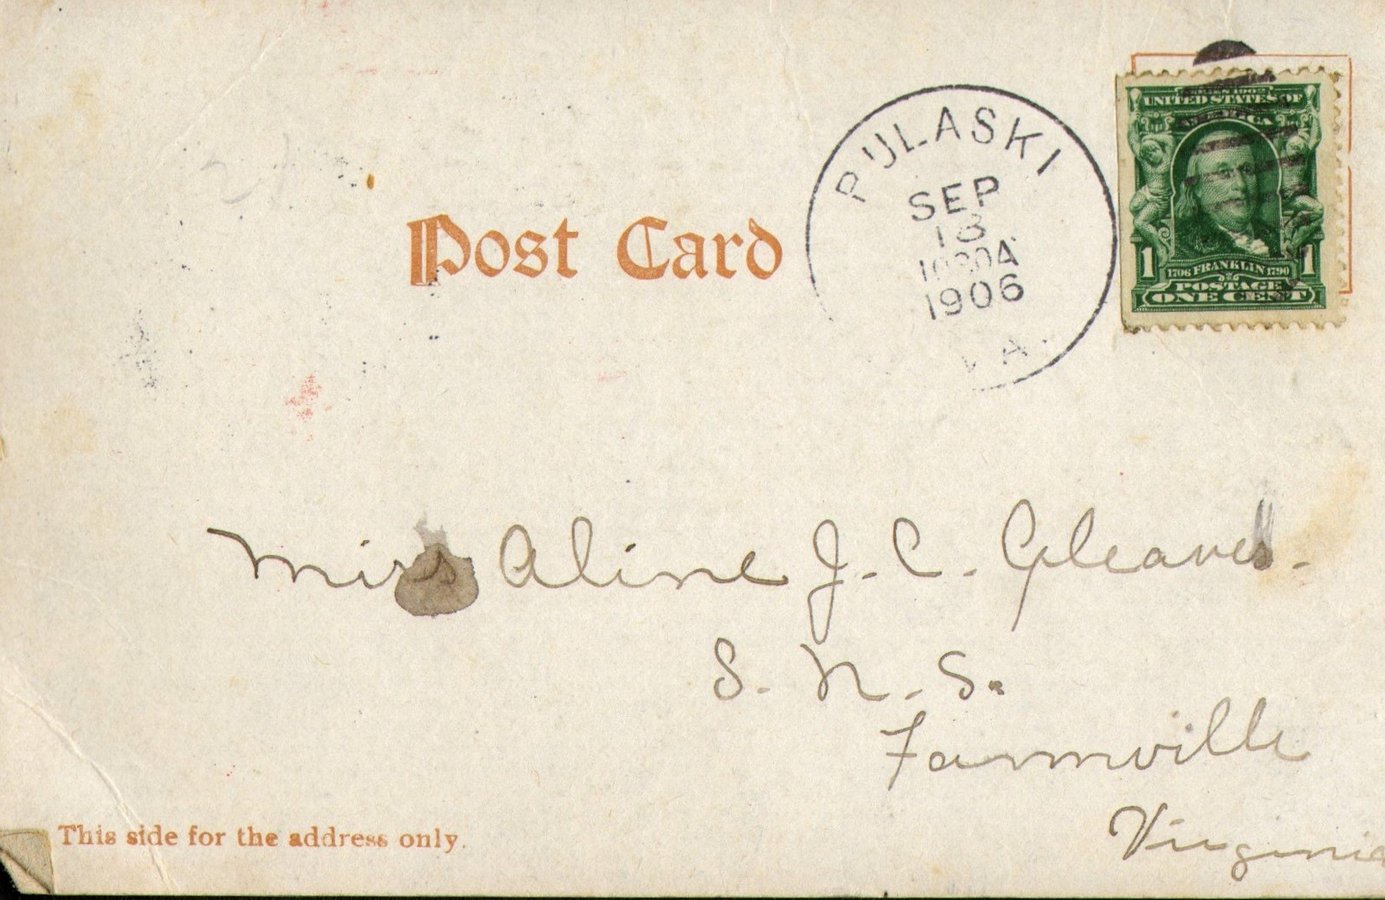 Post Card
PULASKI
SEP
18
1030A
1906
VA.
UNITED STATES OF
AMERICA
1 1706 FRANKLIN 1790 1
POSTAGE
ONE CENT
Miss Aline J. C. Gleaves.
S. N. S.
Farmville
Virginia
This side for the address only.